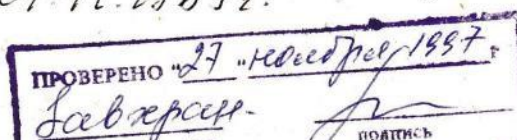 ПРОВЕРЕНО "27" ноября 1997 г
Завхран-
подпись